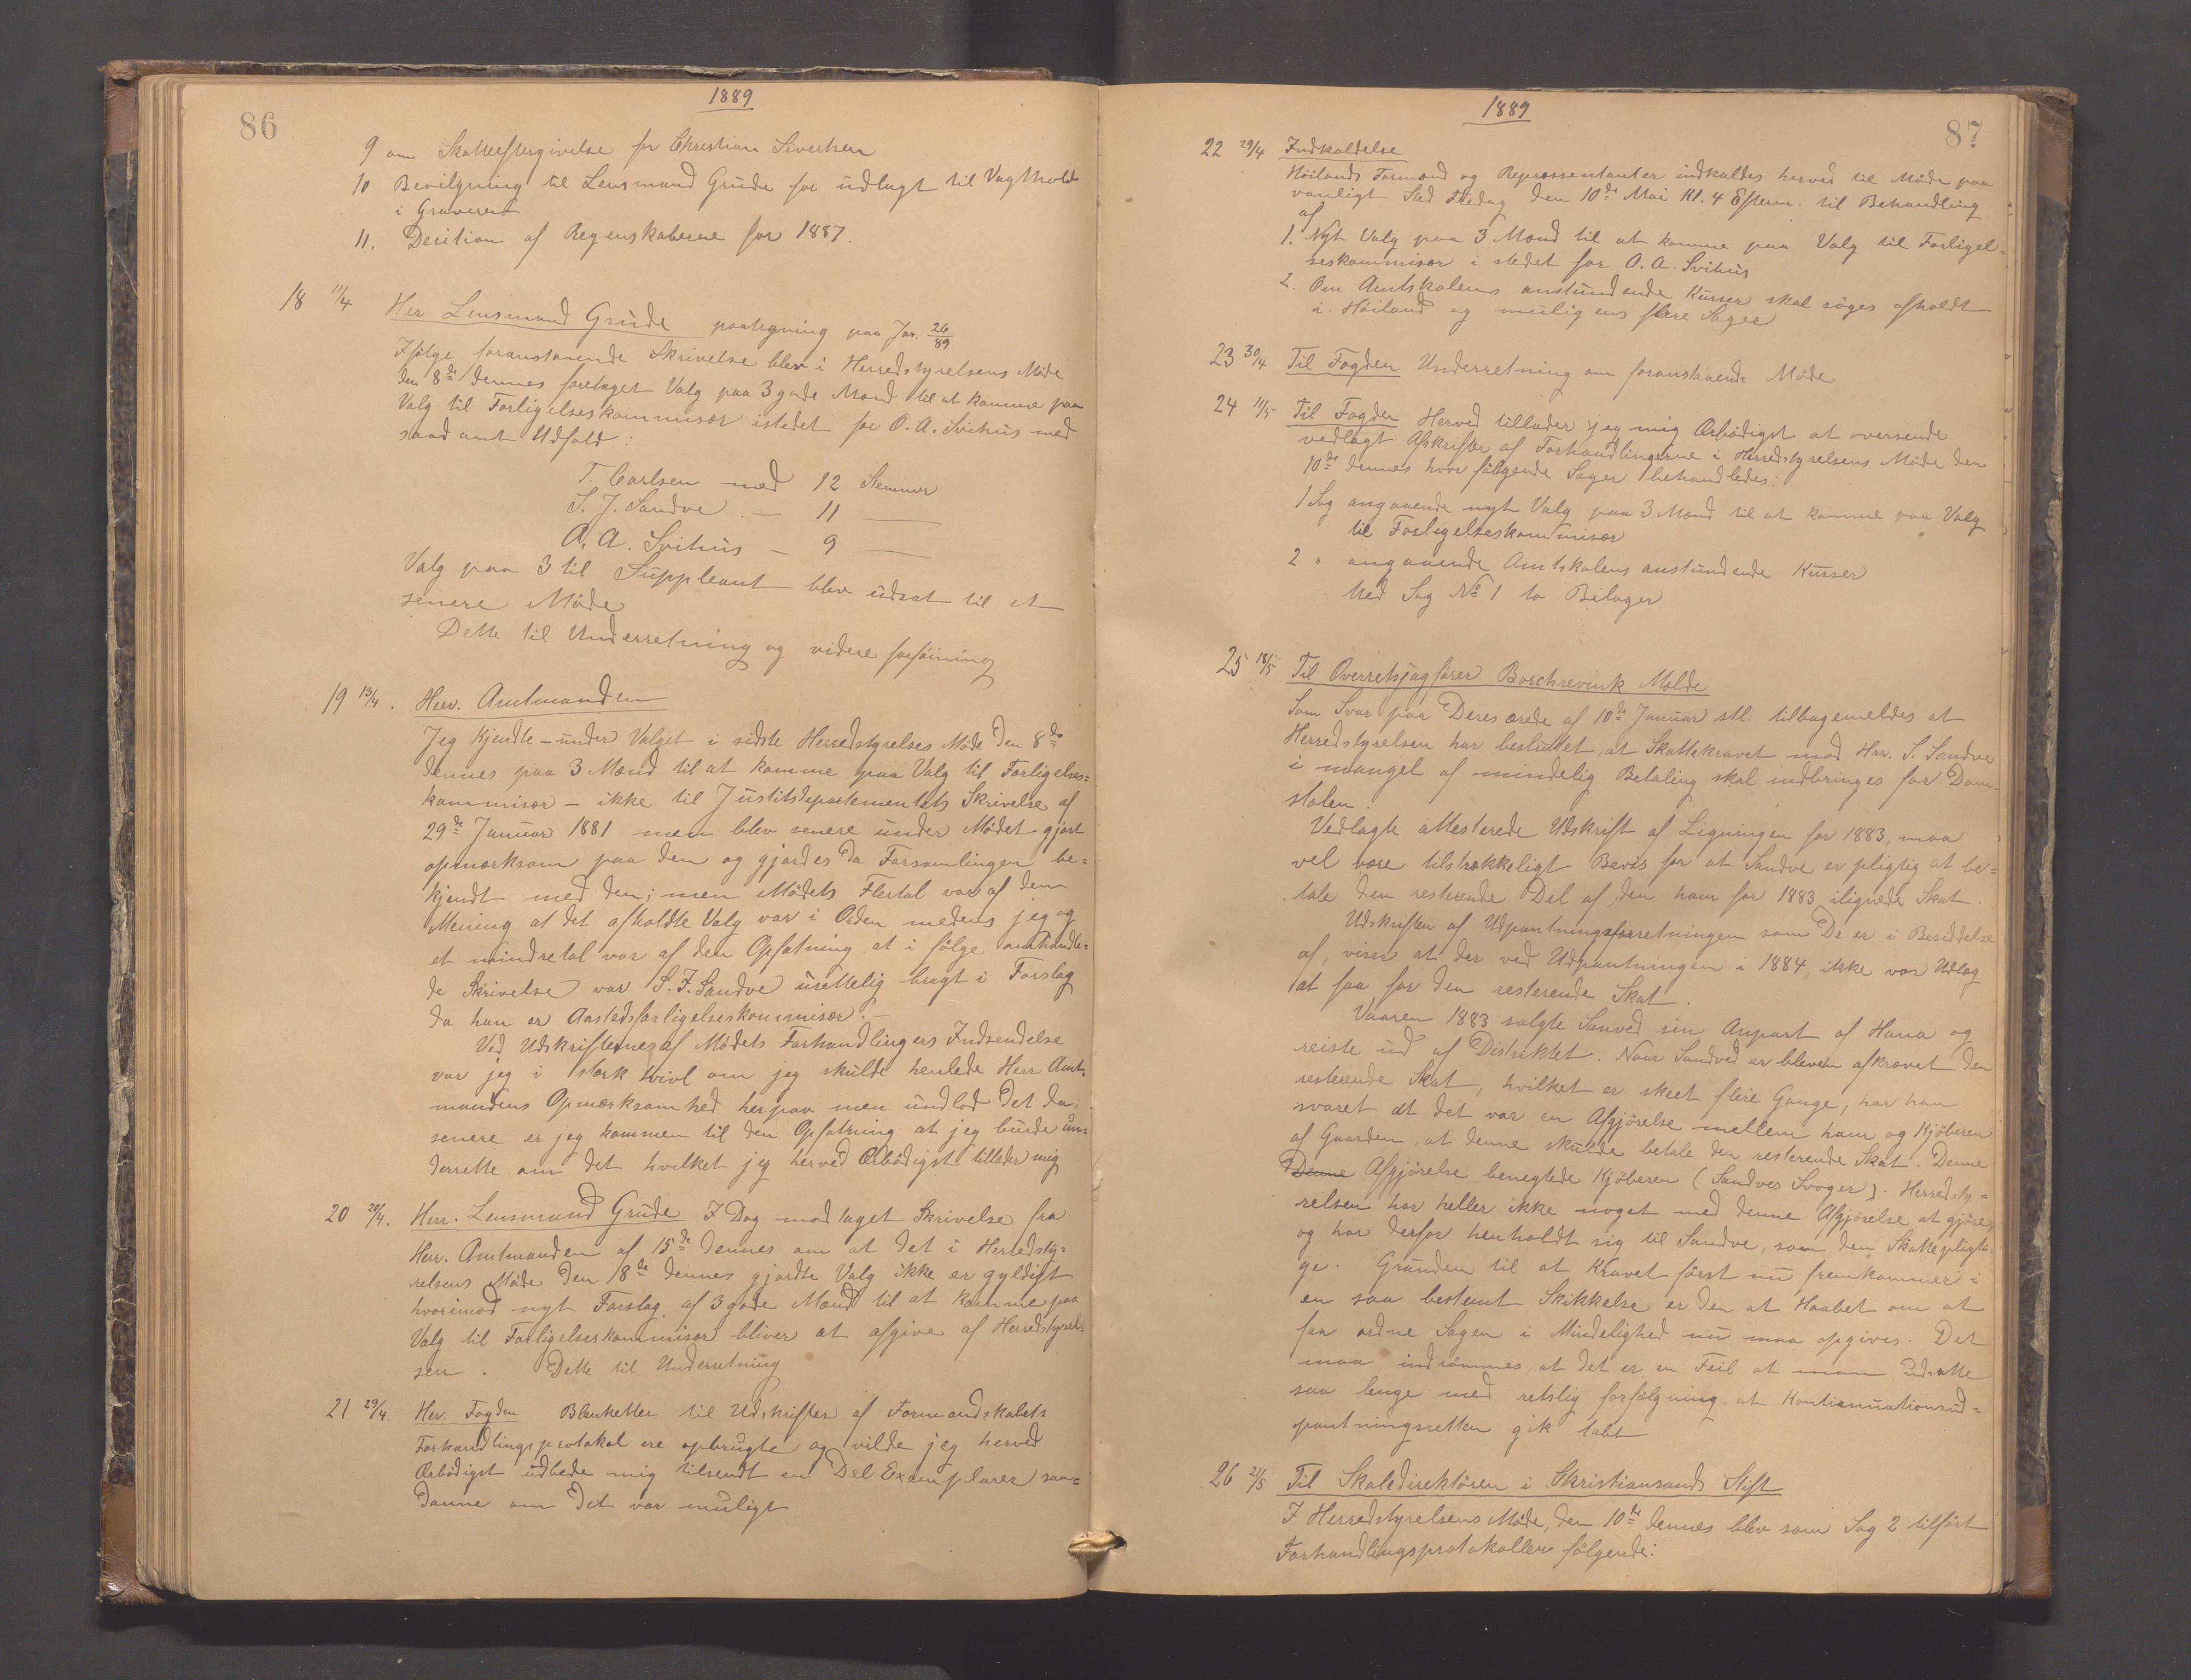 86
1889
9 om Skatteeftergivelse for Christian Sivertsen
10 Bevilgning til Lensmand Grude for udlagt til Vagthold
i Graveren
11. Decition af Regnskaberne for 1887.
18 11/4 Her Lensmand Grude paategning paa Jor. 26/89
Ifølge foranstaaende Skrivelse blev i Herredstyrelsens Møde
den 8de dennes foretaget Valg paa 3 gode Mænd til at komme paa
Valg til Forligelseskommisær istedet for O. A. Svihus med
saadant Udfald:
T. Carlsen med 12 Stemmer
S. J. Sandve — 11 —
A. A. Svihus — 9 —
Valg paa 3 til Suppleant blev udsat til et
senere Møde
Dette til Underretning og videre forføining
19 13/4. Herr. Amtmanden
Jeg kjendte – under Valget i sidste Herredstyrelses Møde den 8de
dennes paa 3 Mænd til at komme paa Valg til Forligelses=
kommisær – ikke til Justitsdepartementets Skrivelse af
29de Januar 1881 men blev senere under Mødet gjort
opmærksom paa den og gjordes da Forsamlingen be=
kjendt med den; men Mødets Flertal var af den
Mening at det afholdte Valg var i Orden medens jeg og
et mindretal var af den Opfatning at i følge omhandle=
de Skrivelse var S. J. Sandve urettelig bragt i Forslag
da han er Aastedsforligelseskommisær. –
Ved Udskrifternes af Mødets Forhandlingers Indsendelse
var jeg i stærk tvivl om jeg skulde henlede Herr Amt=
mandens Opmærksomhed herpaa men undlod det da;
senere er jeg kommen til den Opfatning at jeg burde un=
derrette om det hvilket jeg herved Ærbødigst tillader mig
20 20/4. Herr. Lensmand Grude I Dag modtaget Skrivelse fra
Herr. Amtmanden af 15de dennes om at det i Herredsty=
relsens Møde den 18de dennes gjordte Valg ikke er gyldigt
hvorimod nyt Forslag af 3 gode Mænd til at komme paa
Valg til Forligelseskommisær bliver at afgive af Herredstyrel=
sen. Dette til Underretning
21 29/4. Her. Fogden Blanketter til Udskrifter af Formandskabets
Forhandlingsprotokol ere opbrugte og vilde jeg herved
Ærbødigst udbede mig tilsendt en Del Exemplarer saa=
danne om det var muligt
87
1889
22 29/4 Indkaldelse
Høilands Formænd og Repræsentanter indkaldes herved til Møde paa
vanligt Sted Fredag den 10de Mai Kl. 4 Efterm. til Behandling
af
1. Nyt Valg paa 3 Mænd til at komme paa Valg til Forligel=
seskommisær i stedet for O. A. Svihus
2. Om Amtskolens anstundende Kurser skal søges afholdt
i Høiland og mulig ens flere Sager
23 30/4 Til Fogden Underretning om foranstaaende Møde
24 11/5 Til Fogden Herved tillader jeg mig Ærbødigst at oversende
vedlagt Afskrifter af Forhandlingerne i Herredstyrelsens Møde den
10de dennes hvor følgende Sager behandledes:
1 Sag angaaende nyt Valg paa 3 Mænd til at komme paa Valg
til Forligelseskommisær
2 " angaaende Amtskolens anstundende Kurser
Med Sag No 1 to Bilager
25 18/5 Til Overretsagfører Borchrevink Molde
Som Svar paa Deres ærede af 10de Januar stl. tilbagemeldes at
Herredstyrelsen har besluttet, at Skattekravet mod Hrr. S. Sandve
i mangel af mindelig Betaling skal indbringes for Dom=
stolen.
Vedlagte attesterede Udskrift af Ligningen for 1883, maa
vel være tilstrækkeligt Bevis for at Sandve er pligtig at be=
tale den resterende Del af den ham for 1883 ilignede Skat.
Udskriften af Udpantningsforretningen som De er i Besiddelse
af, viser at der ved Udpantningen i 1884, ikke var Udlæg
at faa for den resterende Skat.
Vaaren 1883 solgte Sanved sin Anpart af Hana og
reiste ud af Distriktet. Naar Sandved er bleven afkrævet den
resterende Skat, hvilket er skeet flere Gange, har han
svaret at det var en Afgjørelse mellem ham og Kjøberen
af Gaarden, at denne skulde betale den resterende Skat. Denne
Denne Afgjørelse benegtede Kjøberen (Sandves Svoger). Herredsty=
relsen har heller ikke noget med denne Afgjørelse at gjøre,
og har derfor henholdt sig til Sandve, som den Skattepligti=
ge. Grunden til at Kravet først nu fremkommer i
en saa bestemt Skikkelse er den at Haabet om at
faa ordne Sagen i Mindelighed nu maa opgives. Det
maa indrømmes, at det er en Feil at man udsatte
saa lenge med retslig forfølgning, at Kontinuationsud=
pantningsretten gik tabt
26 21/5 Til Skoledirektøren i Christiansands Stift
I Herredstyrelsens Møde, den 10de dennes blev som Sag 2 tilført
Forhandlingsprotokollen følgende: